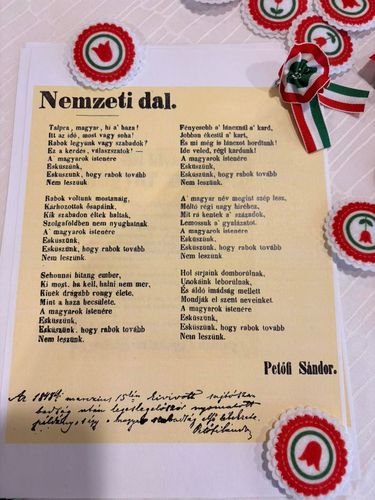 Nemzeti dal.
Talpra magyar, hi a' haza!
Itt az idő, most vagy soha!
Rabok legyünk vagy szabadok?
Ez a kérdés, válaszszatok! —
A magyarok istenére
Esküszünk,
Esküszünk, hogy rabok tovább
Nem leszünk
Rabok voltunk mostanáig,
Kárhozottak ősapáink,
Kik szabadon éltek haltak,
Szolgaföldben nem nyughatnak.
A' magyarok istenére
Esküszünk,
Esküszünk, hogy rabok tovább
Nem leszünk.
Sehonnai bitang ember,
Ki most, ha kell, halni nem mer,
Kinek drágább rongy élete,
Mint a haza becsülete.
A magyarok istenére
Esküszünk,
Esküszünk, hogy rabok tovább
Nem leszünk.
Fényesebb a' láncznál a' kard,
Jobban ékesíti a' kart,
És mi még is lánczot hordtunk!
Ide veled, régi kardunk!
A magyarok istenére
Esküszünk,
Esküszünk, hogy rabok tovább
Nem leszünk.
A' magyar név megint szép lesz,
Méltó régi nagy hiréhez,
Mit rá kentek a' századok,
Lemossuk a' gyalázatot.
A magyarok istenére
Esküszünk,
Esküszünk, hogy rabok tovább
Nem leszünk.
Hol sirjaink domborulnak,
Unokáink leborulnak,
És áldó imádság mellett
Mondják el szent neveinket.
A magyarok istenére
Esküszünk,
Esküszünk, hogy rabok tovább
Nem leszünk.
Petőfi Sándor.
Az marczius 15kén kivívott sajtósza-
badság után legeslegelőször nyomatott
példány, s így a magyar szabadság első lélekzete.
Petőfi Sándor